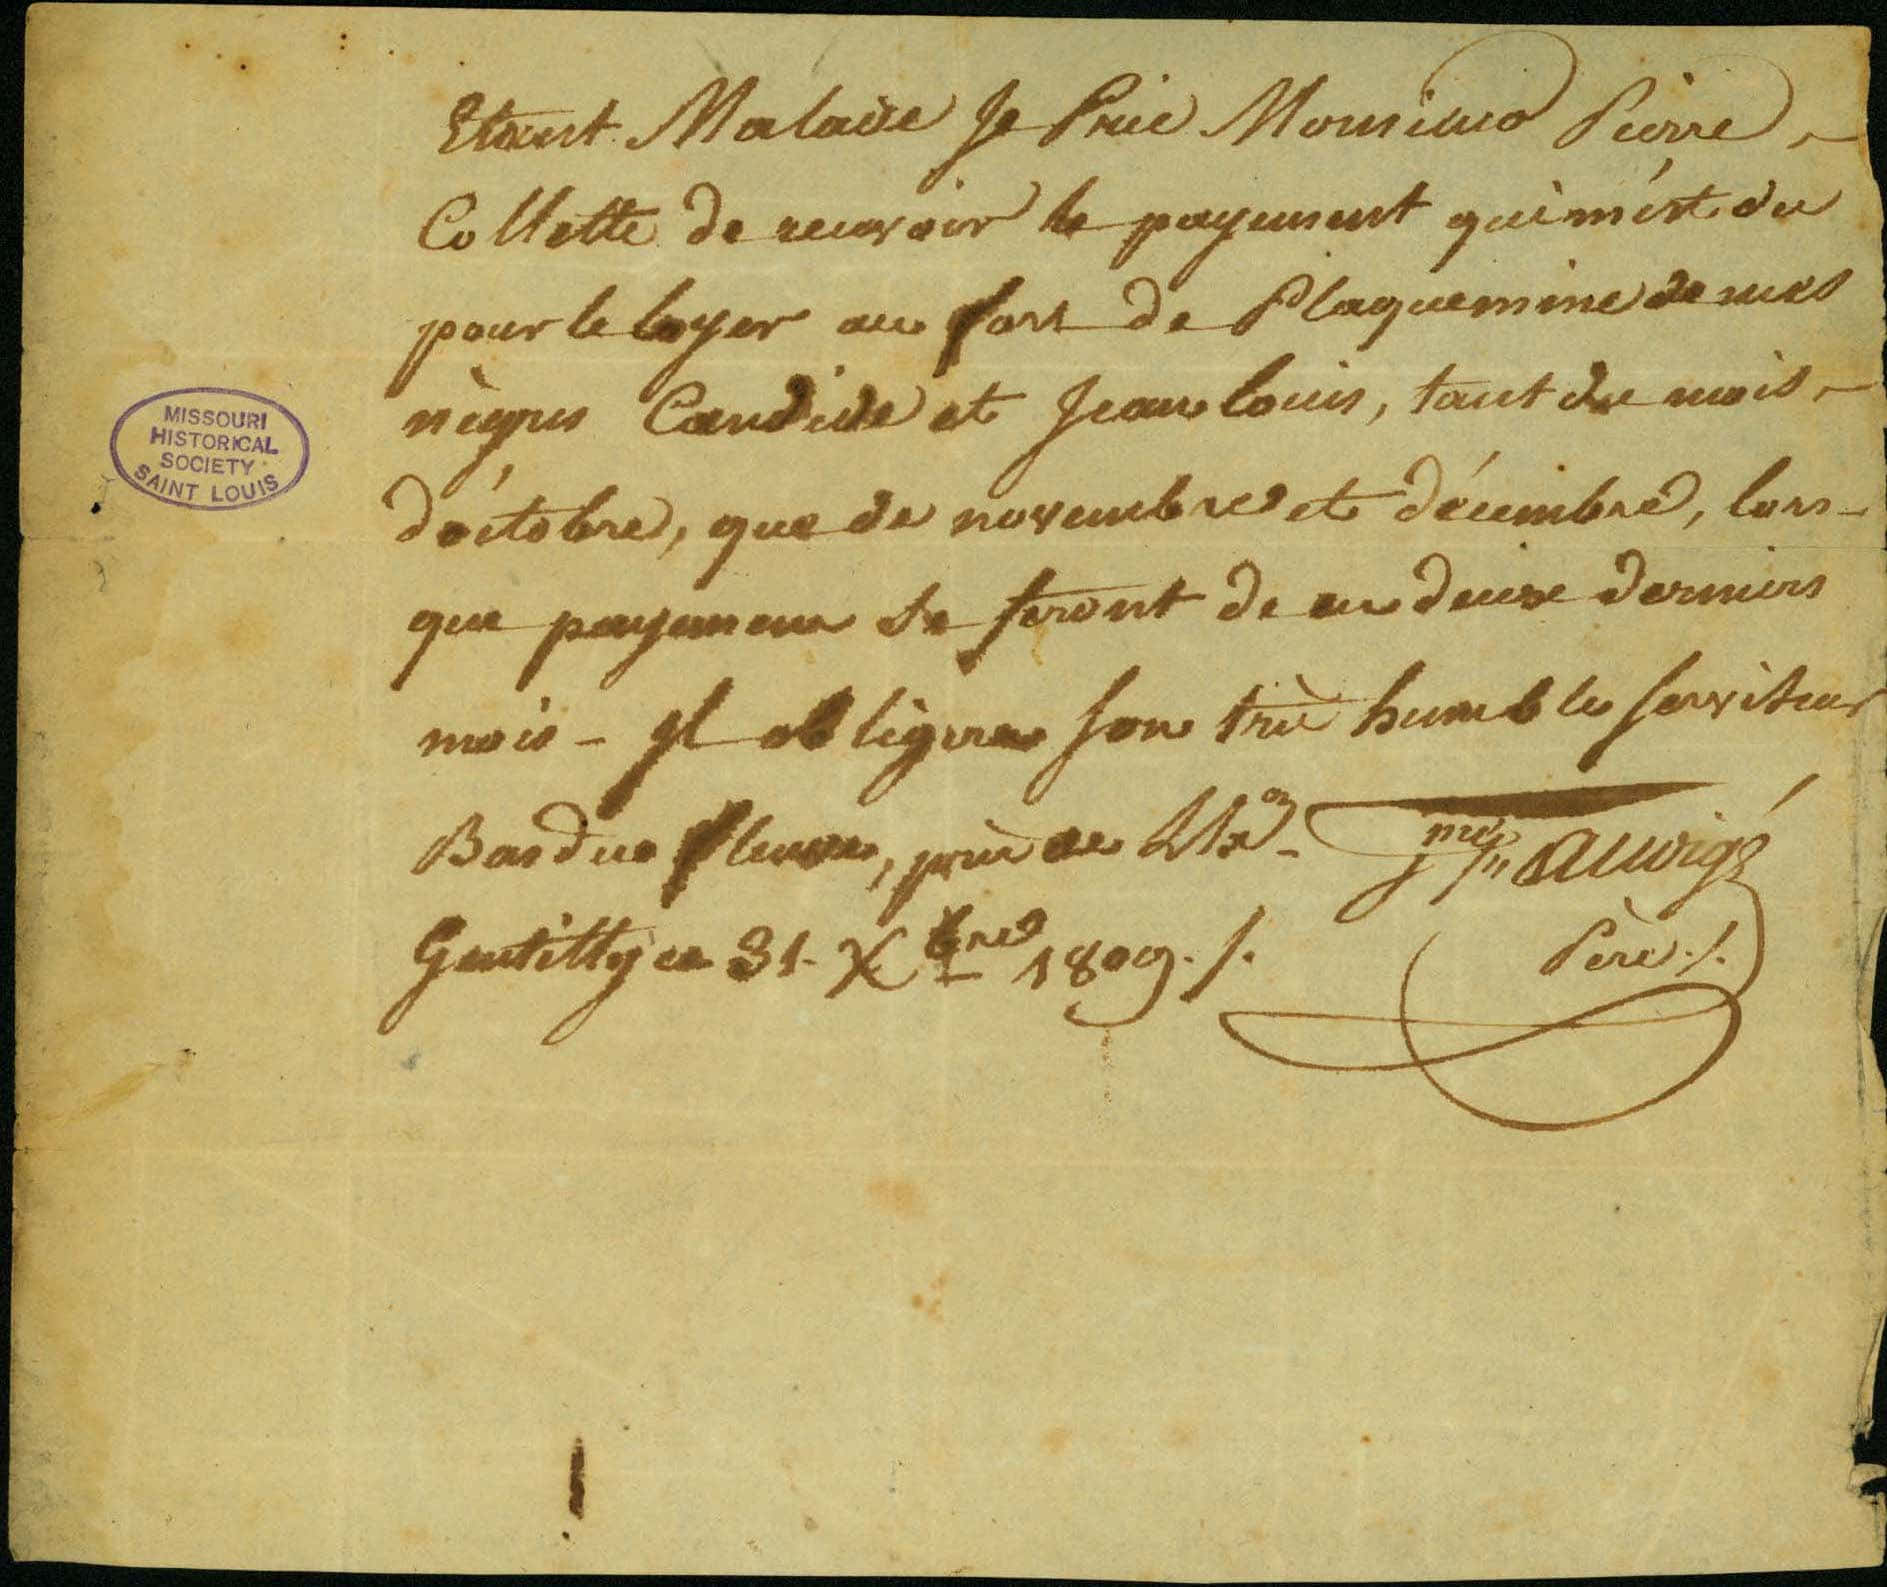 Etant Malade Je Prie Monsieur Pierre
Collette de recevoir le payement qui m'ést du
pour le loyer au fort de Plaquemine de mes
nègres Candide et Jean louis, tant du mois
d'óctobre, que de novembre et décembre, lors-
que payemens se feront de ces deux derniers
mois - Il obligera son très humble serviteur
Bas du fleuve, près de
Gentilly ce 31. Xbre 1809 ./.
Père ./.
MISSOURI
HISTORICAL
SOCIETY
SAINT LOUIS